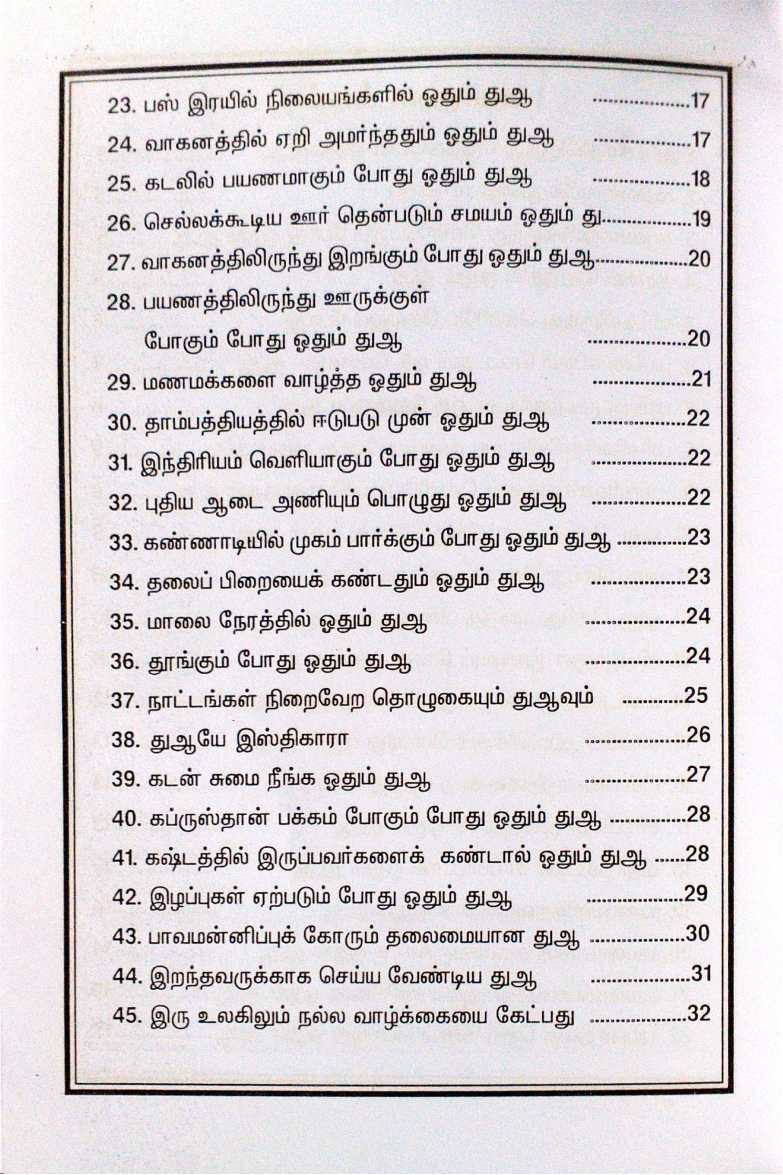 23. பஸ் இரயில் நிலையங்களில் ஓதும் துஆ .................17
24. வாகனத்தில் ஏறி அமர்ந்ததும் ஓதும் துஆ .................17
25. கடலில் பயணமாகும் போது ஓதும் துஆ .................18
26. செல்லக்கூடிய ஊர் தென்படும் சமயம் ஓதும் து................19
27. வாகனத்திலிருந்து இறங்கும் போது ஓதும் துஆ.................20
28. பயணத்திலிருந்து ஊருக்குள்
போகும் போது ஓதும் துஆ ..................20
29. மணமக்களை வாழ்த்த ஓதும் துஆ ..................21
30. தாம்பத்தியத்தில் ஈடுபடு முன் ஓதும் துஆ .................22
31. இந்திரியம் வெளியாகும் போது ஓதும் துஆ .................22
32. புதிய ஆடை அணியும் பொழுது ஓதும் துஆ .................22
33. கண்ணாடியில் முகம் பார்க்கும் போது ஓதும் துஆ .............23
34. தலைப் பிறையைக் கண்டதும் ஓதும் துஆ .................23
35. மாலை நேரத்தில் ஓதும் துஆ ..................24
36. தூங்கும் போது ஓதும் துஆ ..................24
37. நாட்டங்கள் நிறைவேற தொழுகையும் துஆவும் ............25
38. துஆயே இஸ்திகாரா ..................26
39. கடன் சுமை நீங்க ஓதும் துஆ ..................27
40. கப்ருஸ்தான் பக்கம் போகும் போது ஓதும் துஆ ..............28
41. கஷ்டத்தில் இருப்பவர்களைக் கண்டால் ஓதும் துஆ ......28
42. இழப்புகள் ஏற்படும் போது ஓதும் துஆ ..................29
43. பாவமன்னிப்புக் கோரும் தலைமையான துஆ .................30
44. இறந்தவருக்காக செய்ய வேண்டிய துஆ ..................31
45. இரு உலகிலும் நல்ல வாழ்க்கையை கேட்பது .................32